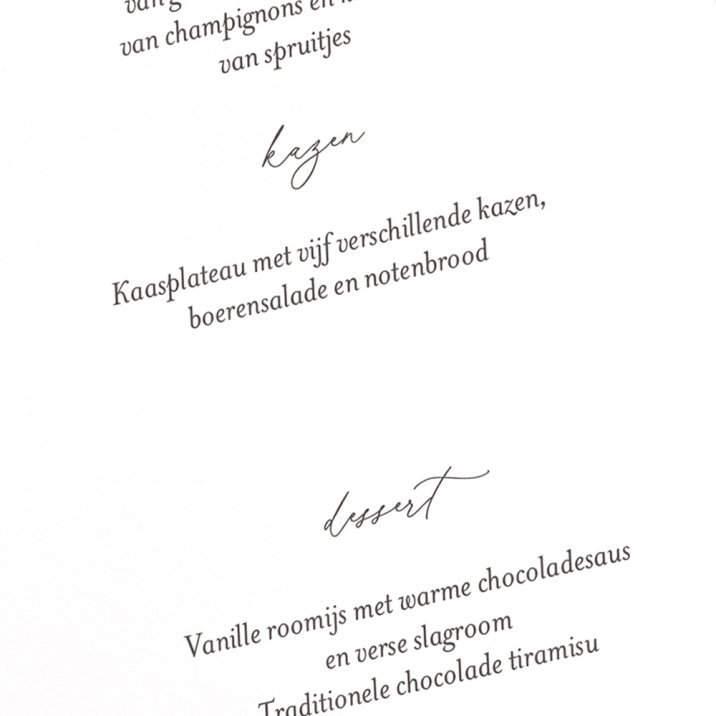 van champignons en
van spruitjes
kazen
Kaasplateau met vijf verschillende kazen,
boerensalade en notenbrood
dessert
Vanille roomijs met warme chocoladesaus
en verse slagroom
Traditionele chocolade tiramisu